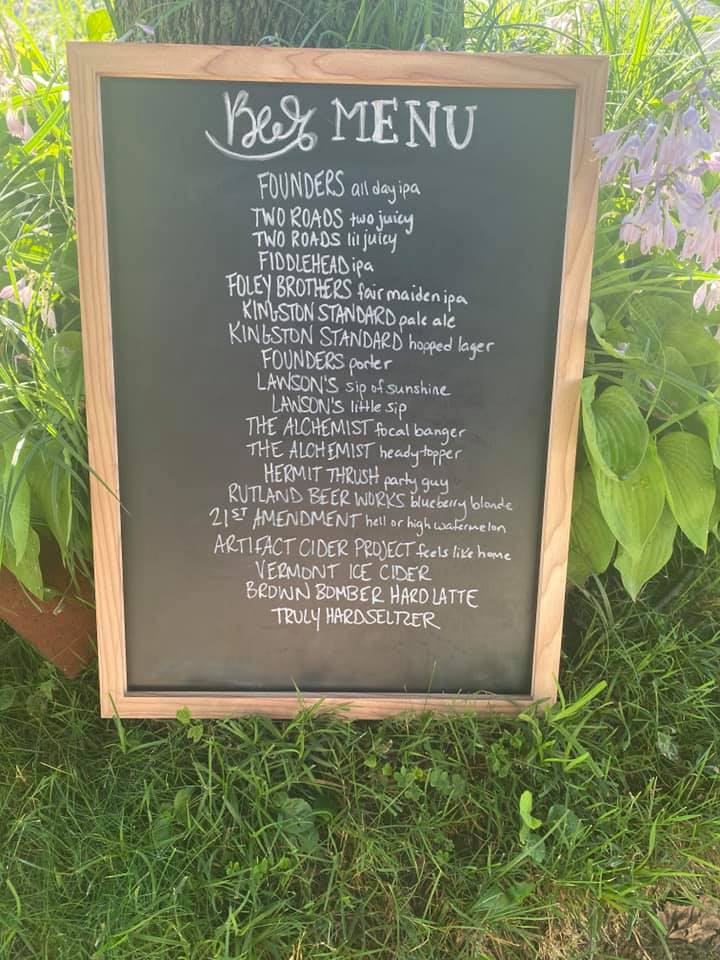 Beer MENU
FOUNDERS all day ipa
TWO ROADS two juicy
TWO ROADS lil juicy
FIDDLEHEAD ipa
FOLEY BROTHERS fair maiden ipa
KINGSTON STANDARD pale ale
KINGSTON STANDARD hopped lager
FOUNDERS porter
LAWSON'S sip of sunshine
LAWSON'S little sip
THE ALCHEMIST focal banger
THE ALCHEMIST heady topper
HERMIT THRUSH party guy
RUTLAND BEER WORKS blueberry blonde
21ST AMENDMENT hell or high watermelon
ARTIFACT CIDER PROJECT feels like home
VERMONT ICE CIDER
BROWN BOMBER HARD LATTE
TRULY HARDSELTZER